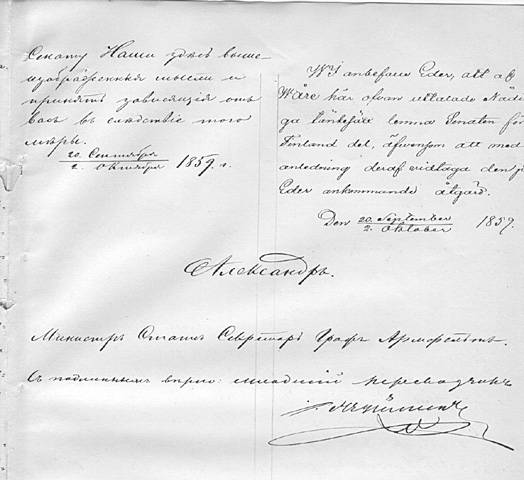 Сенату Наши здѣсь выше-
изображенныя мысли и
принять зависящія отъ
васъ въ слѣдствіе того
мѣры.
20. Сентября
2. Октября 1859. г.
Wi anbefalle Eder, att af
Wåre här ofvan uttalade Nådi-
ga tänkesätt lemna Senaten för
Finland del, äfvensom att med
anledning deraf vidtaga den på
Eder ankommande åtgärd.
Den 20. September
2. Oktober 1859.
Александръ.
Министръ Статсъ Секретарь Графъ Армфельтъ.
Съ подлиннымъ вѣрно: младшій переводчикъ